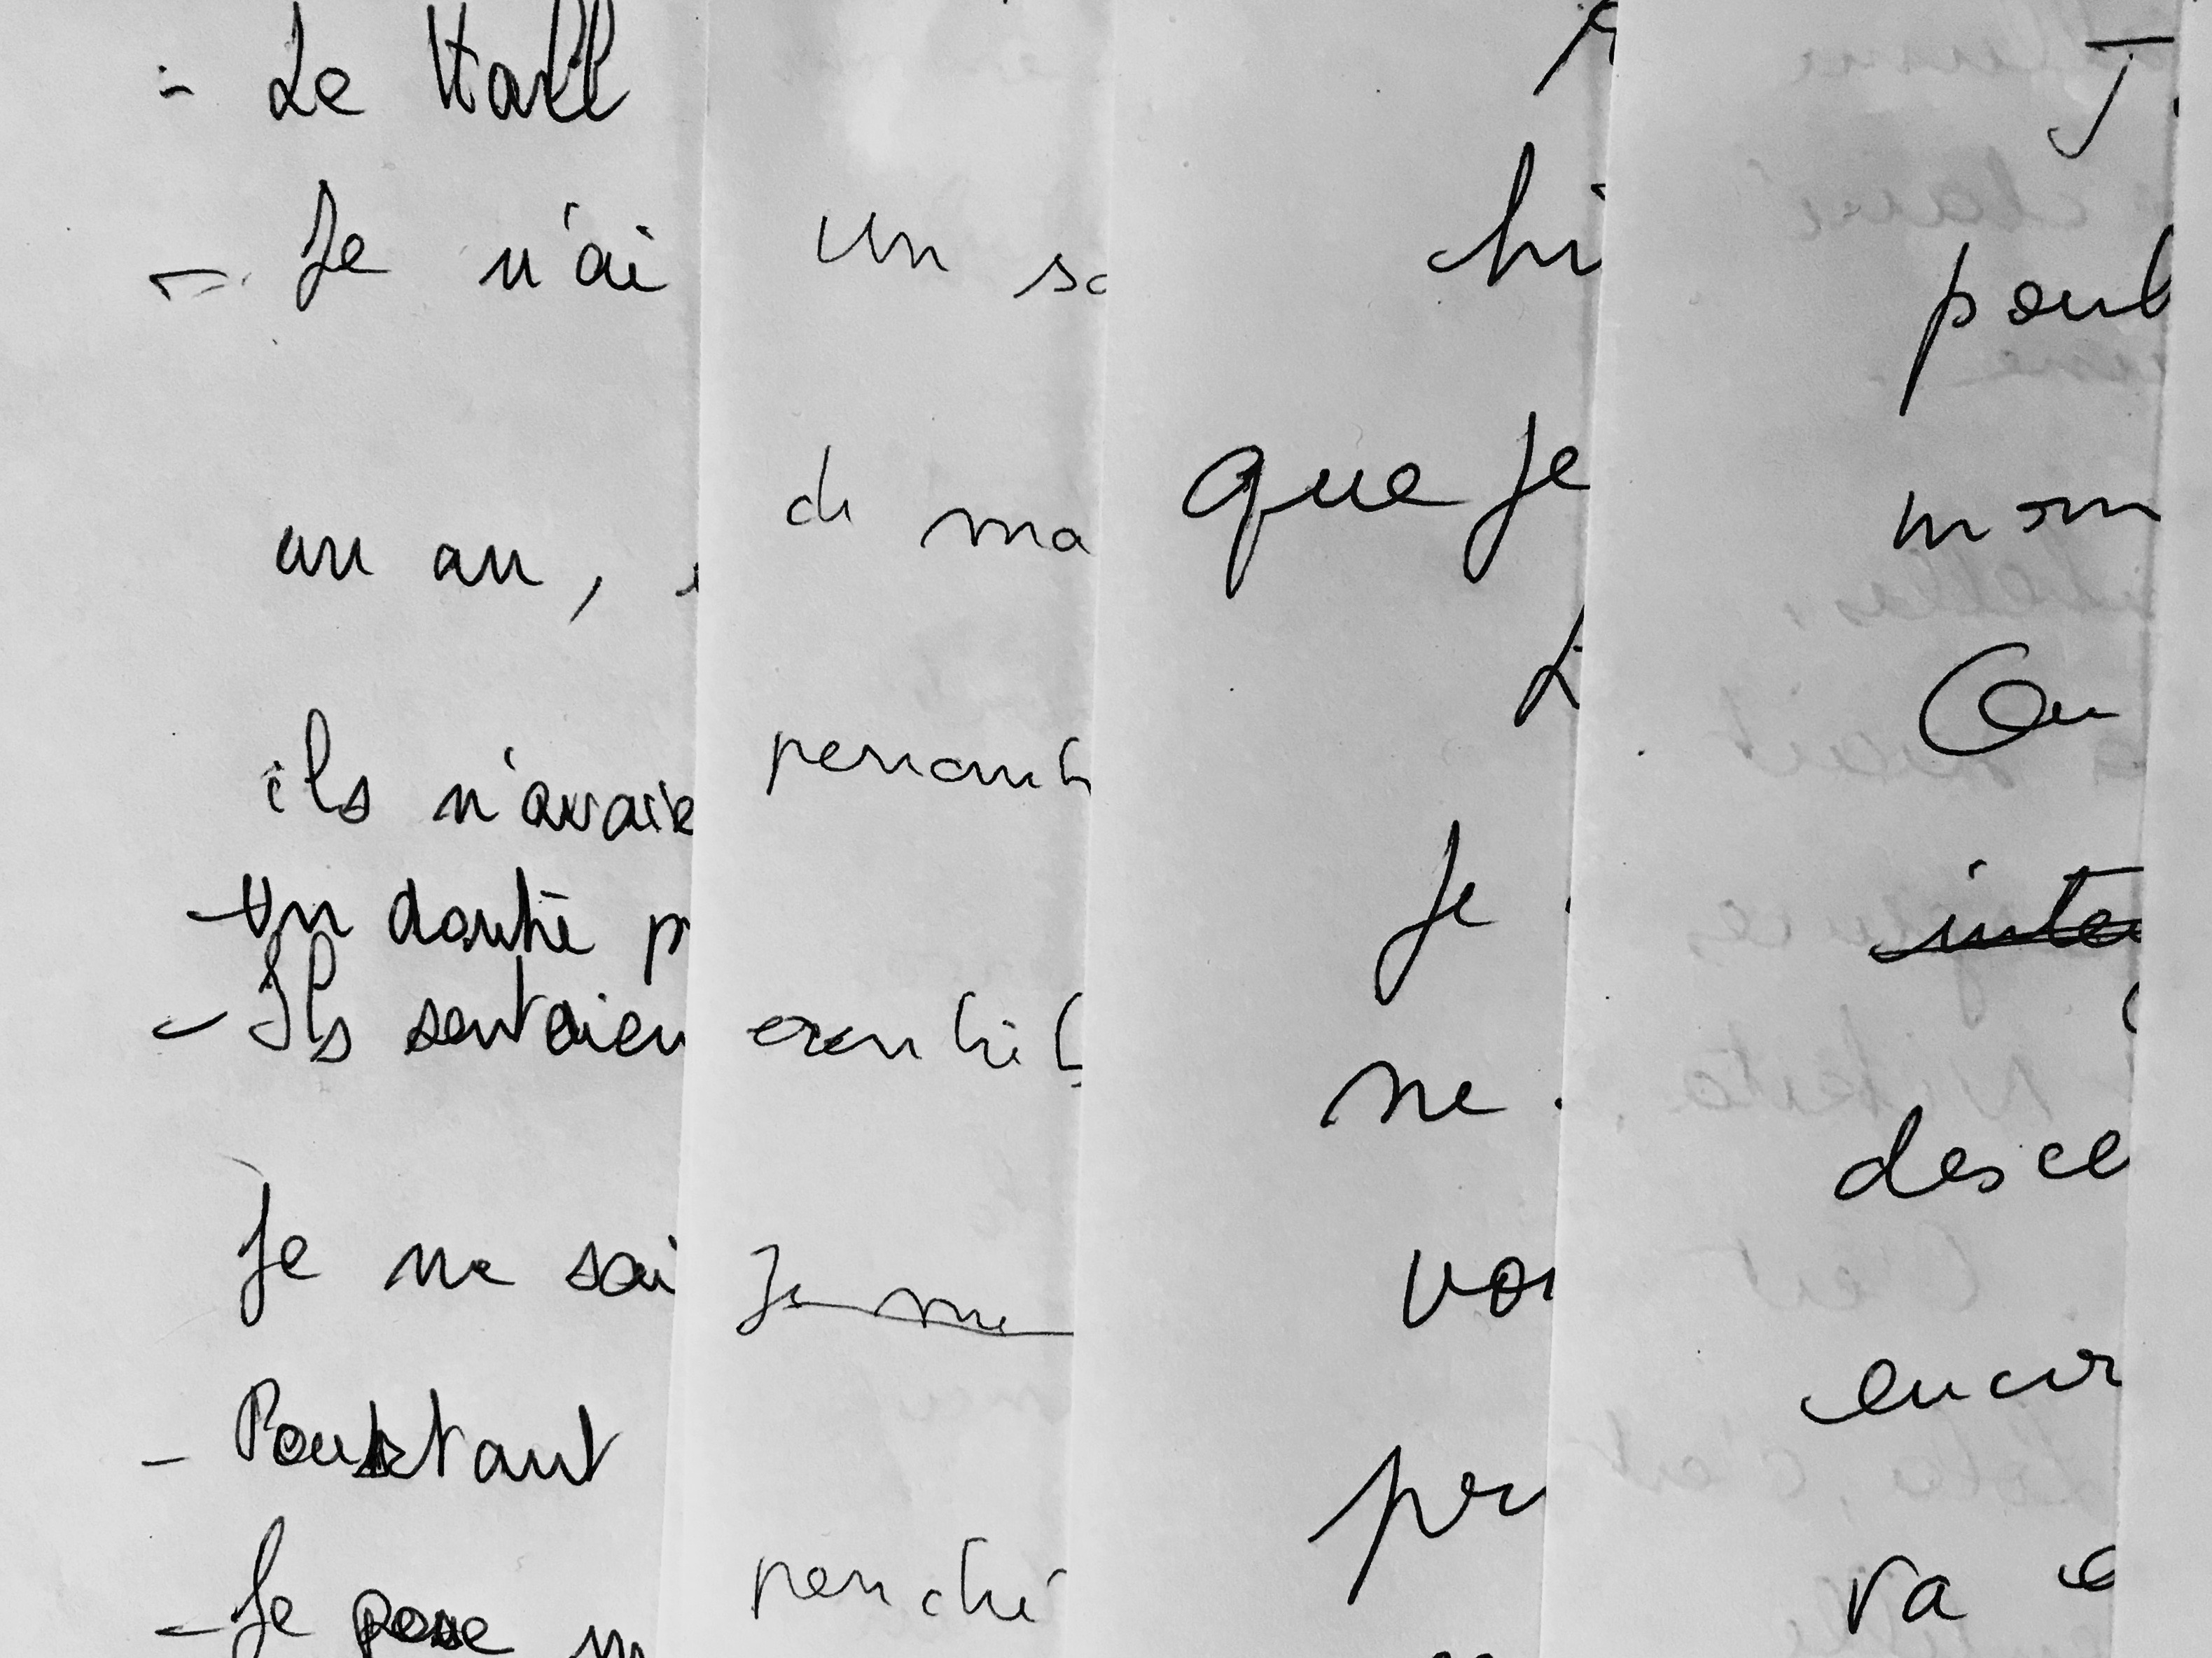 - Le Hall
- Je n'ai
un an,
ils n'avaie
- Un doute p
- Ils sentaien
Je ne sai
- Pourtant
- Je pose m
un so
de ma
penant
Je me
penché
hi
que Je
L
Je
ne
vou
pr
T
poub
mom
On
inte
desce
encor
va e